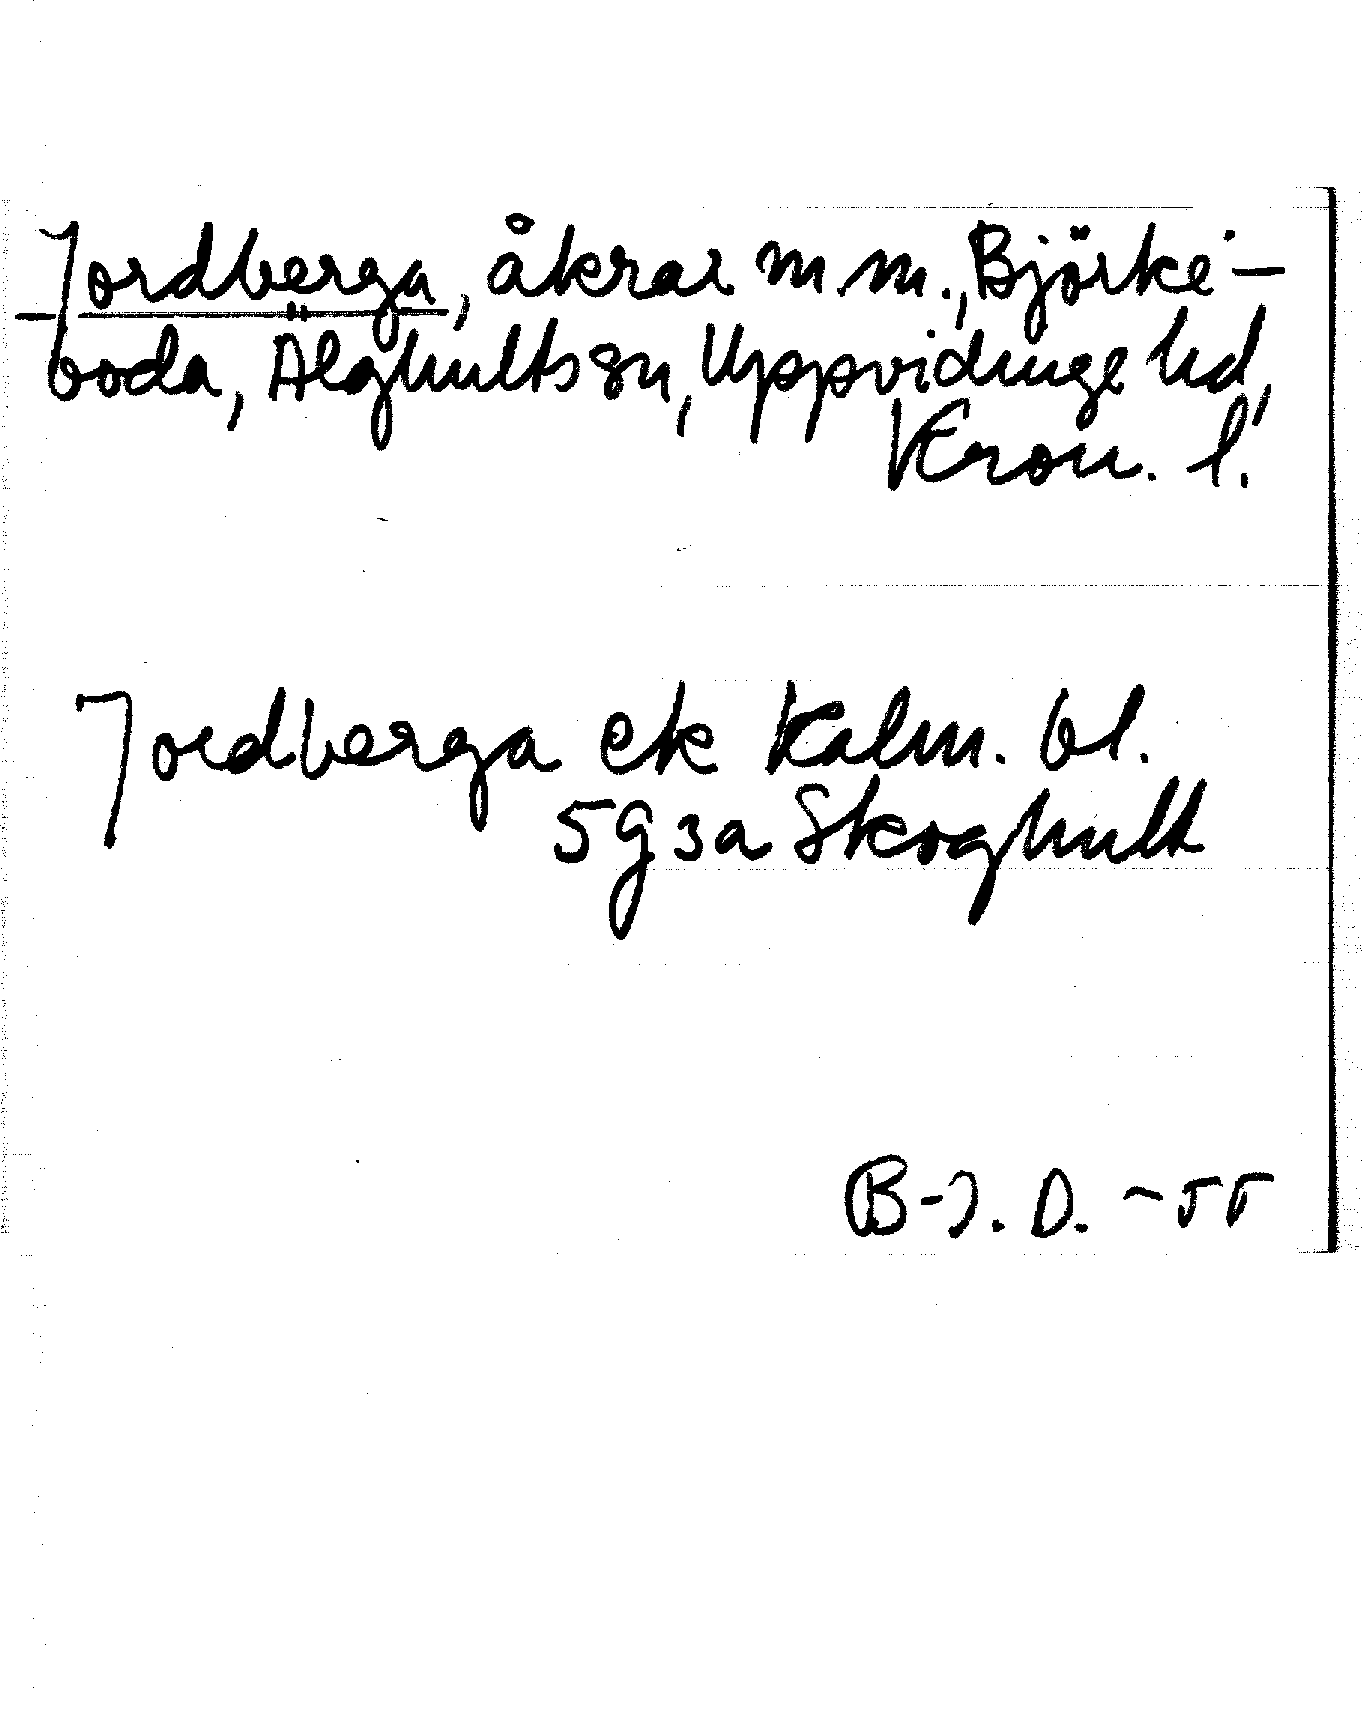 Jordberga, åkrar m.m., Björke-
boda, Älghults sn, Uppvidinge hd,
Kron. l.
Jordberga ek Kalm. bl.
5g 3a Skoghult
B-J. D. -55